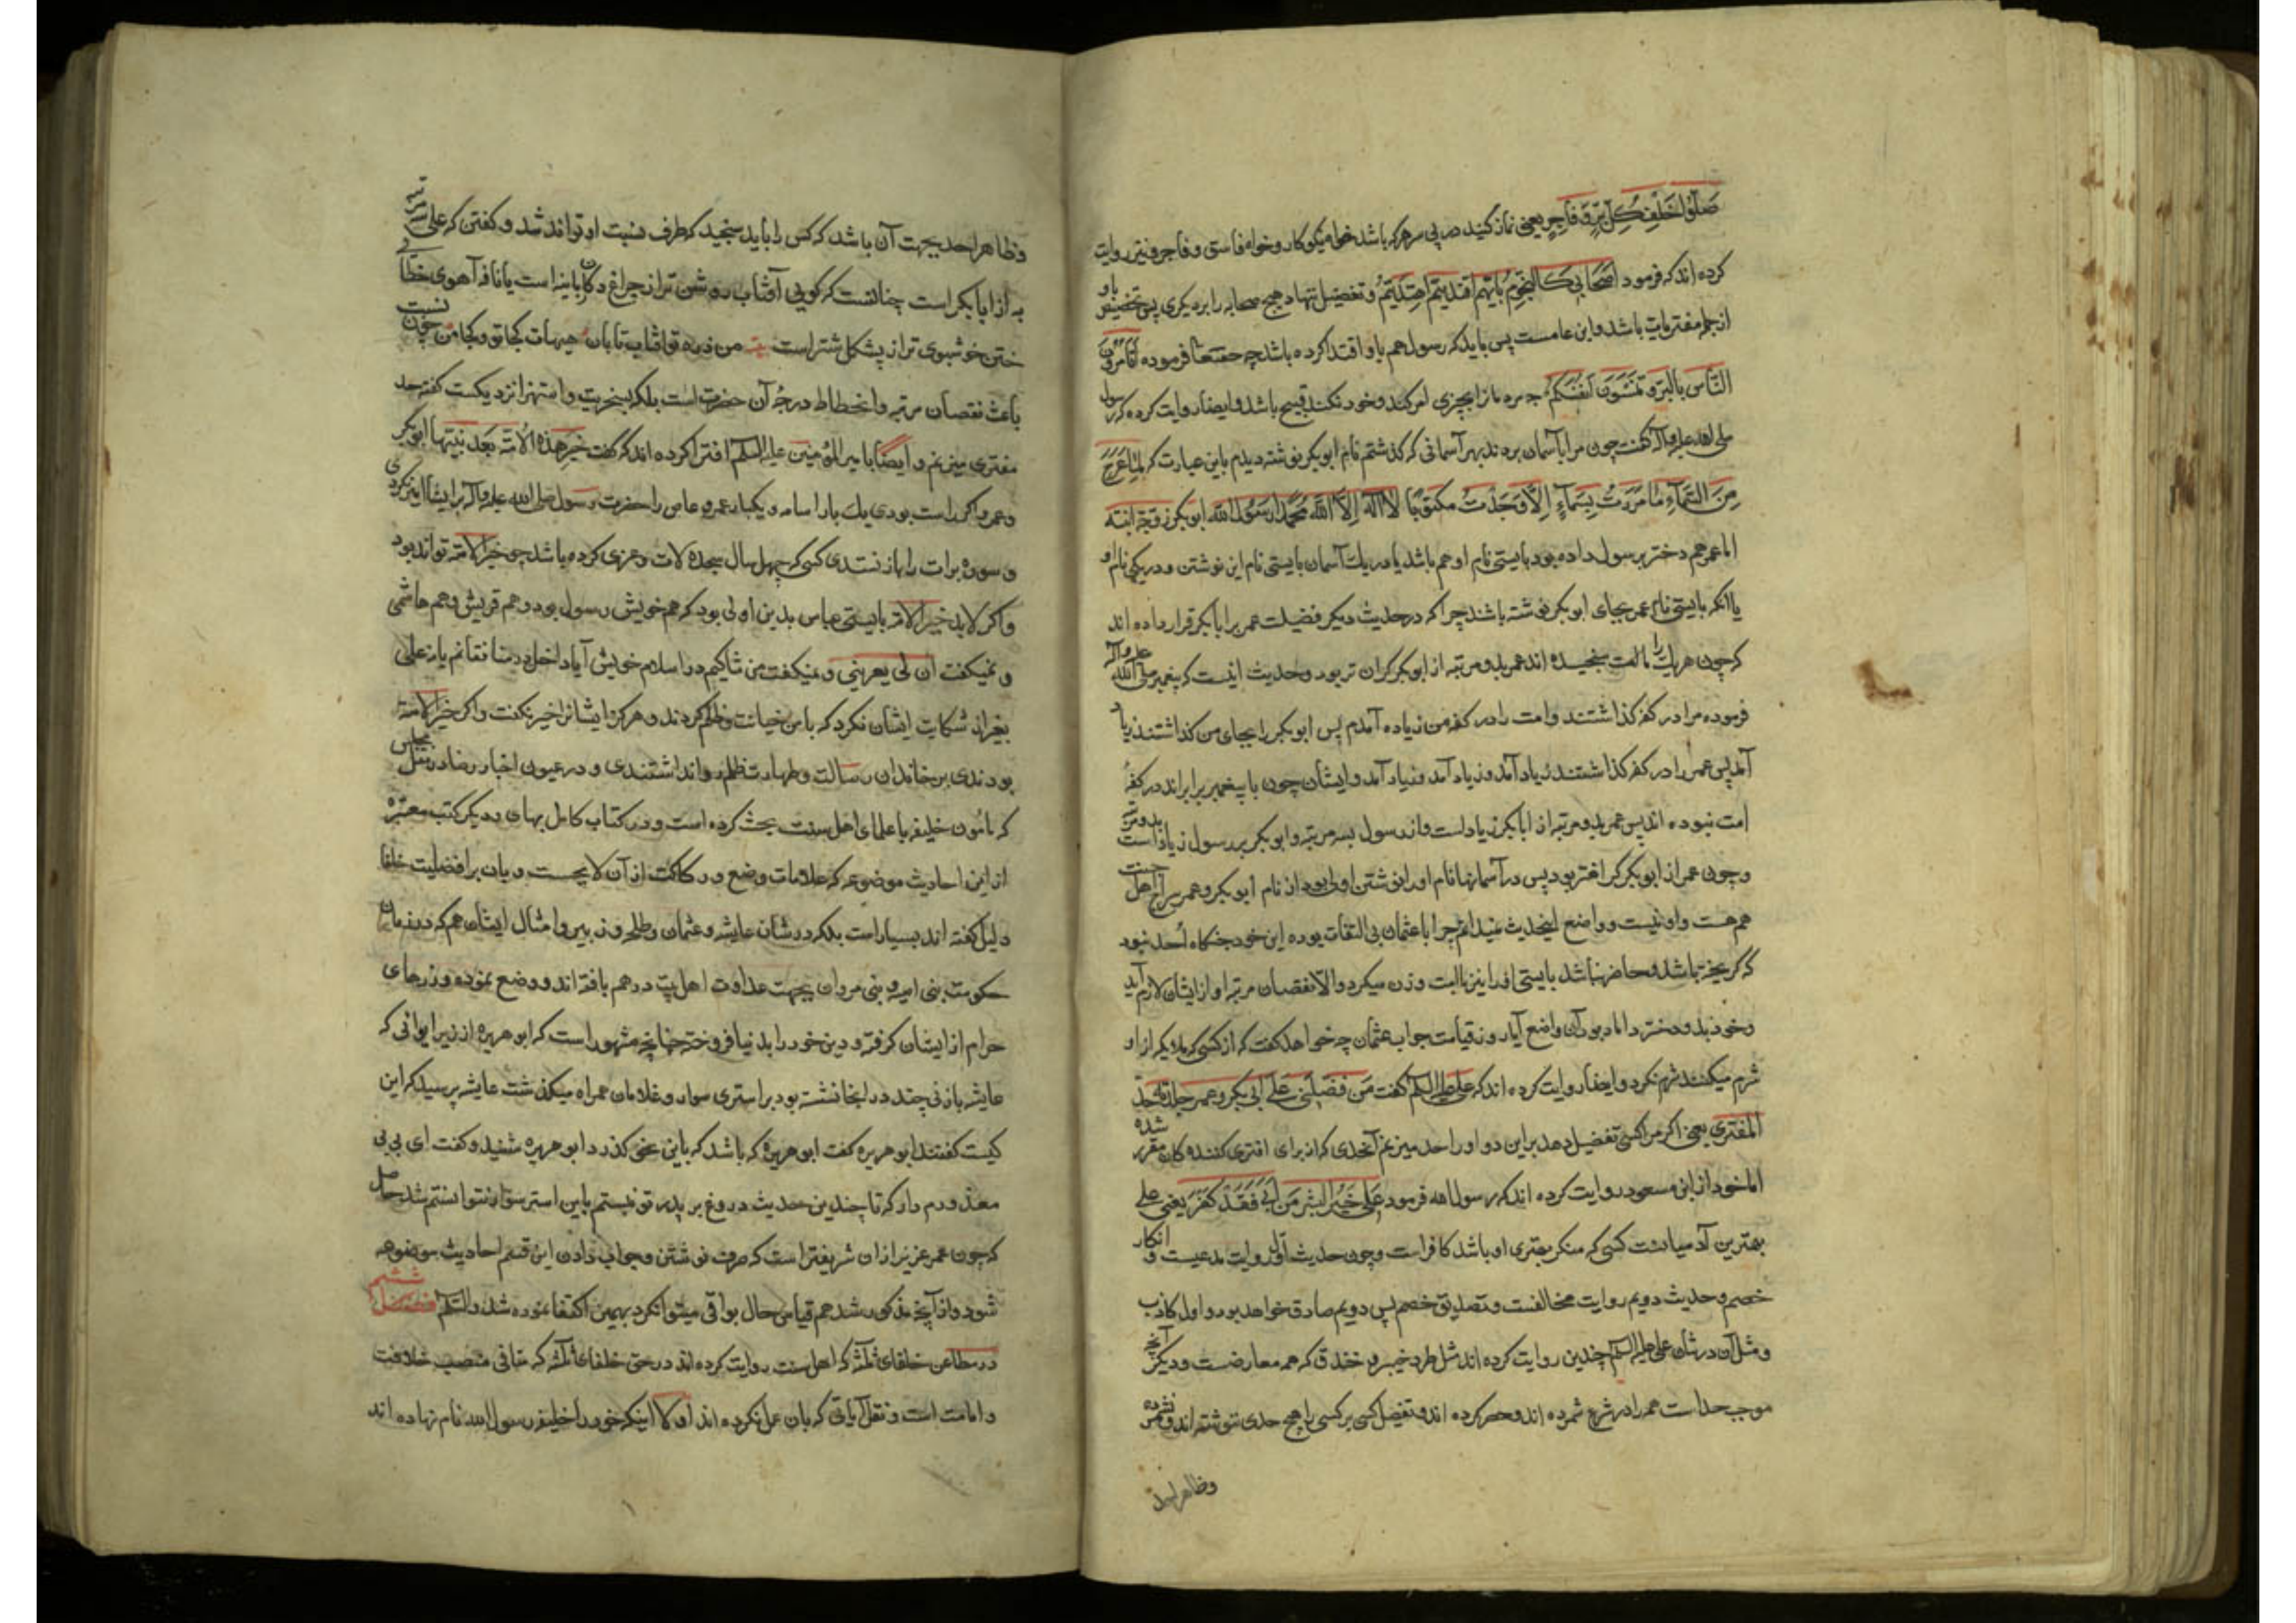 صَلّوا خَلْفَ كلِّ بَرٍّ وَفاجِرٍ یعنی نماز کنید در پی هر که باشد خواه نیکوکار و خواه فاسق و فاجر و نیز روایت
کرده اند که فرمود اصحابی کالنجوم بایهم اقتدیتم اهتدیتم و تفضیل ننهاد هیچ صحابه را بر دیگری پس تخصیص باو
از جمله مفتریات باشد و این عامست پس باید که رسول هم باو اقتدا کرده باشد چه حقتعالی فرموده اتأمرون
النّاس بالبرّ و تنسون انفسکم چه مردمانرا بچیزی امر کند و خود نکند قبیح باشد و ایضا روایت کرده که رسول
صلی الله علیه وآله گفت چون مرا بآسمان بردند بهر آسمانی که گذشتم نام ابوبکر نوشته دیدم باین عبارت که لمّا عرج
مِنَ السَّماءِ ما مررتُ بسماءٍ إلّا وجدت مکتوبًا لا اله الّا الله محمّدا رسول الله ابوبکر زوجه ابنته
اما عمر هم دختر برسول داده بود بایستی نام او هم باشد یا در یک آسمان بایستی نام این نوشتن و در یکی نام او
یا انکه بایستی نام عمر بجای ابوبکر نوشته باشند چرا که در حدیث دیگر فضیلت عمر برا بابکر قرار داده اند
که چون هر یک را با امت سنجیده اند عمر بدو مرتبه از ابوبکر گران تر بود و حدیث اینست که پیغمبر صلی الله علیه وآله
فرموده مرا در کفه گذاشتند و امت را در کفه من زیاده آمدم پس ابوبکر را بجای من گذاشتند زیاد
آمد پس عمر را در کفه گذاشتند زیاد آمد و زیاد آمد و زیاد آمد و ایشان چون با پیغمبر برابر اند در کفۀ
امت نبوده اند پس عمر بدو مرتبه از ابابکر زیاد است و از رسول بسه مرتبه و ابوبکر بر رسول زیاد است بدو مرتبه
و چون عمر از ابوبکر گرانتر بود پس در آسمانها نام او را نوشتن اولی بود از نام ابوبکر و عمر سراج اهل جنت
هم هست و او نیست و واضع اینحدیث نمیدانم چرا با عثمان بی التفات بوده این خود جنگاه اُحد نبود
که گریخته باشد و حاضر نباشد بایستی او را نیز با امت وزن میکرد والّا نقصان مرتبه او از ایشان لازم آید
و خود بدو دختر داماد بود آن واضع آیا روز قیامت جواب عثمان چه خواهد گفت که از کسی که ملایکه از او
شرم میکنند شرم نکرد و ایضا روایت کرده اند که علی علیه السلم گفت مَن فضّلنی علی ابی بکر و عمر جلدته حدّ
المفتری یعنی اگر مرا کسی تفضیل دهد براین دو او را حد میزنم آنحدی که از برای افتری کننده کان مقرر شده
اما خود از ابن مسعود روایت کرده اند که رسول الله فرمود علیٌ خیر البشر من ابی فَقَد کَفَر یعنی علی
بهترین آدمیانست کسی که منکر بهتری او باشد کافر است و چون حدیث اول روایت مدعیست و انکار
خصم و حدیث دویم روایت مخالفست و تصدیق خصم پس دویم صادق خواهد بود و اول کاذب
و مثل آن در شان علی علیه السلم چندین روایت کرده اند مثل طیر و خیبر و خندق که همه معارضست و دیگر آنچه
موجب حد است همه را در شرع شمرده اند و حصر کرده اند و تفضیل کسی بر کسی را هیچ حدی ننوشته اند و نشمرده
وظاهرا حد
وظاهرا حد بجهت آن باشد که کس را باید سنجید که طرف نسبت او تواند شد و گفتن که علی
به از ابابکر است چنانست که گویی آفتاب روشن تر از چراغ دکابانیه است یا نافه آهوی خطا
ختن خوشبوی تر از پشکل شتر است من ذره تو آفتاب تابان هیهات کجا تو و کجا من چون نسبت
باعث نقصان مرتبه و انحطاط درجۀ آن حضرت است بلکه بسخریت و استهزا نزدیکست گفته حد
مفتری میزنم و ایضًا بامیر المؤمنین علیه السلم افترا کرده اند که گفت خیر هذه الامّه بعد نبیّها ابوبکر
و عمر و اگر راست بودی یک بار اسامه و یکبار عمرو عاص را حضرت رسول صلی الله علیه وآله بر ایشان امیر نکردی
و سوره برات را باز نستدی کسی که چهل سال سجده لات و عزی کرده باشد چون خیر الامّه تواند بود
و اگر لابد خیر الامه بایستی عباس بدین اولی بود که هم خویش رسول بود و هم قریش و هم هاشمی
و نمیگفت ان لی یعرینی و نمیگفت من شاکیم در اسلام خویش آیا داخل در منافقانم یا نه علی
بغیر از شکایت ایشان نکرد که با من خیانت و ظلم کردند و هرگز ایشانرا خیر نگفت و اگر خیر الامّة
بودندی بر خاندان رسالت و طهارت ظلم روا نداشتندی و در عیون اخبار رضا در مجلس
که مأمون خلیفه با علمای اهل سنت بحث کرده است و در کتاب کامل بهای و دیگر کتب معتبره
از این احادیث موضوعه که علامات وضع و رکاکت از آن لایحست و بان بر افضلیت خلفا
دلیل گفته اند بسیار است بلکه در شان عایشه و عثمان و طلحه و زبیر و امثال ایشان هم که در زمان
حکومت بنی امیه و بنی مروان بجهت عداوت اهل بیت در هم بافته اند و وضع نموده و زرهای
حرام از ایشان گرفته و دین خود را بدنیا فروخته چنانچه مشهور است که ابوهریره از زیر ایوانی که
عایشه بازنی چند در انجا نشسته بود بر استری سوار و غلامان همراه میگذشت عایشه پرسید که این
کیست گفتند ابوهریره گفت ابوهریره که باشد که باین نحو گذرد ابوهریره شنید و گفت ای بی بی
معذورم دار که تا چندین حدیث دروغ بر پدر تو نبستم باین استر سوار نتوانستم شد حاصل
که چون عمر عزیز از ان شریفتر است که صرف نوشتن و جواب دادن این قسم احادیث موضوعه
شود و از آنچه مذکور شد هم قیاس حال بواقی میتوان کرد بهمین اکتفا نموده شد والسّلم فصل ششم
در مطاعن خلفای ثلثه که اهل سنت روایت کرده اند در حق خلفای ثلثه که منافی منصب خلافت
و امامت است و نقل آیاتی که بان عمل نکرده اند اولا اینکه خود را خلیفه رسول الله نام نهاده اند